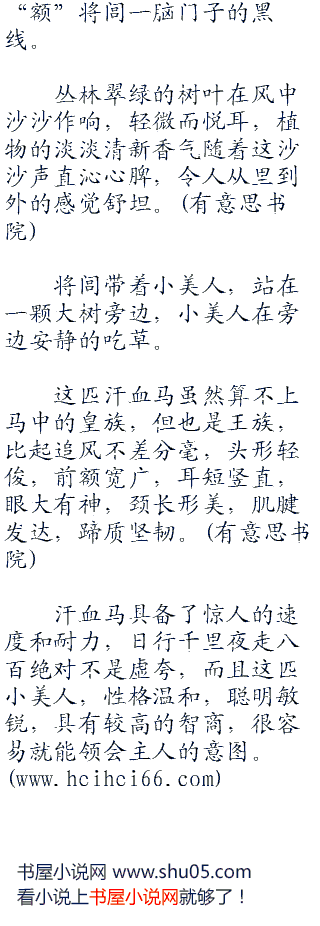 “额”将闾一脑门子的黑
线。
丛林翠绿的树叶在风中
沙沙作响，轻微而悦耳，植
物的淡淡清新香气随着这沙
沙声直沁心脾，令人从里到
外的感觉舒坦。(有意思书
院)
将闾带着小美人，站在
一颗大树旁边，小美人在旁
边安静的吃草。
这匹汗血马虽然算不上
马中的皇族，但也是王族，
比起追风不差分毫，头形轻
俊，前额宽广，耳短竖直，
眼大有神，颈长形美，肌腱
发达，蹄质坚韧。(有意思书
院)
汗血马具备了惊人的速
度和耐力，日行千里夜走八
百绝对不是虚夸，而且这匹
小美人，性格温和，聪明敏
锐，具有较高的智商，很容
易就能领会主人的意图。
(www.hcihci66.com)
书屋小说网 www.shu05.com
看小说上书屋小说网就够了！